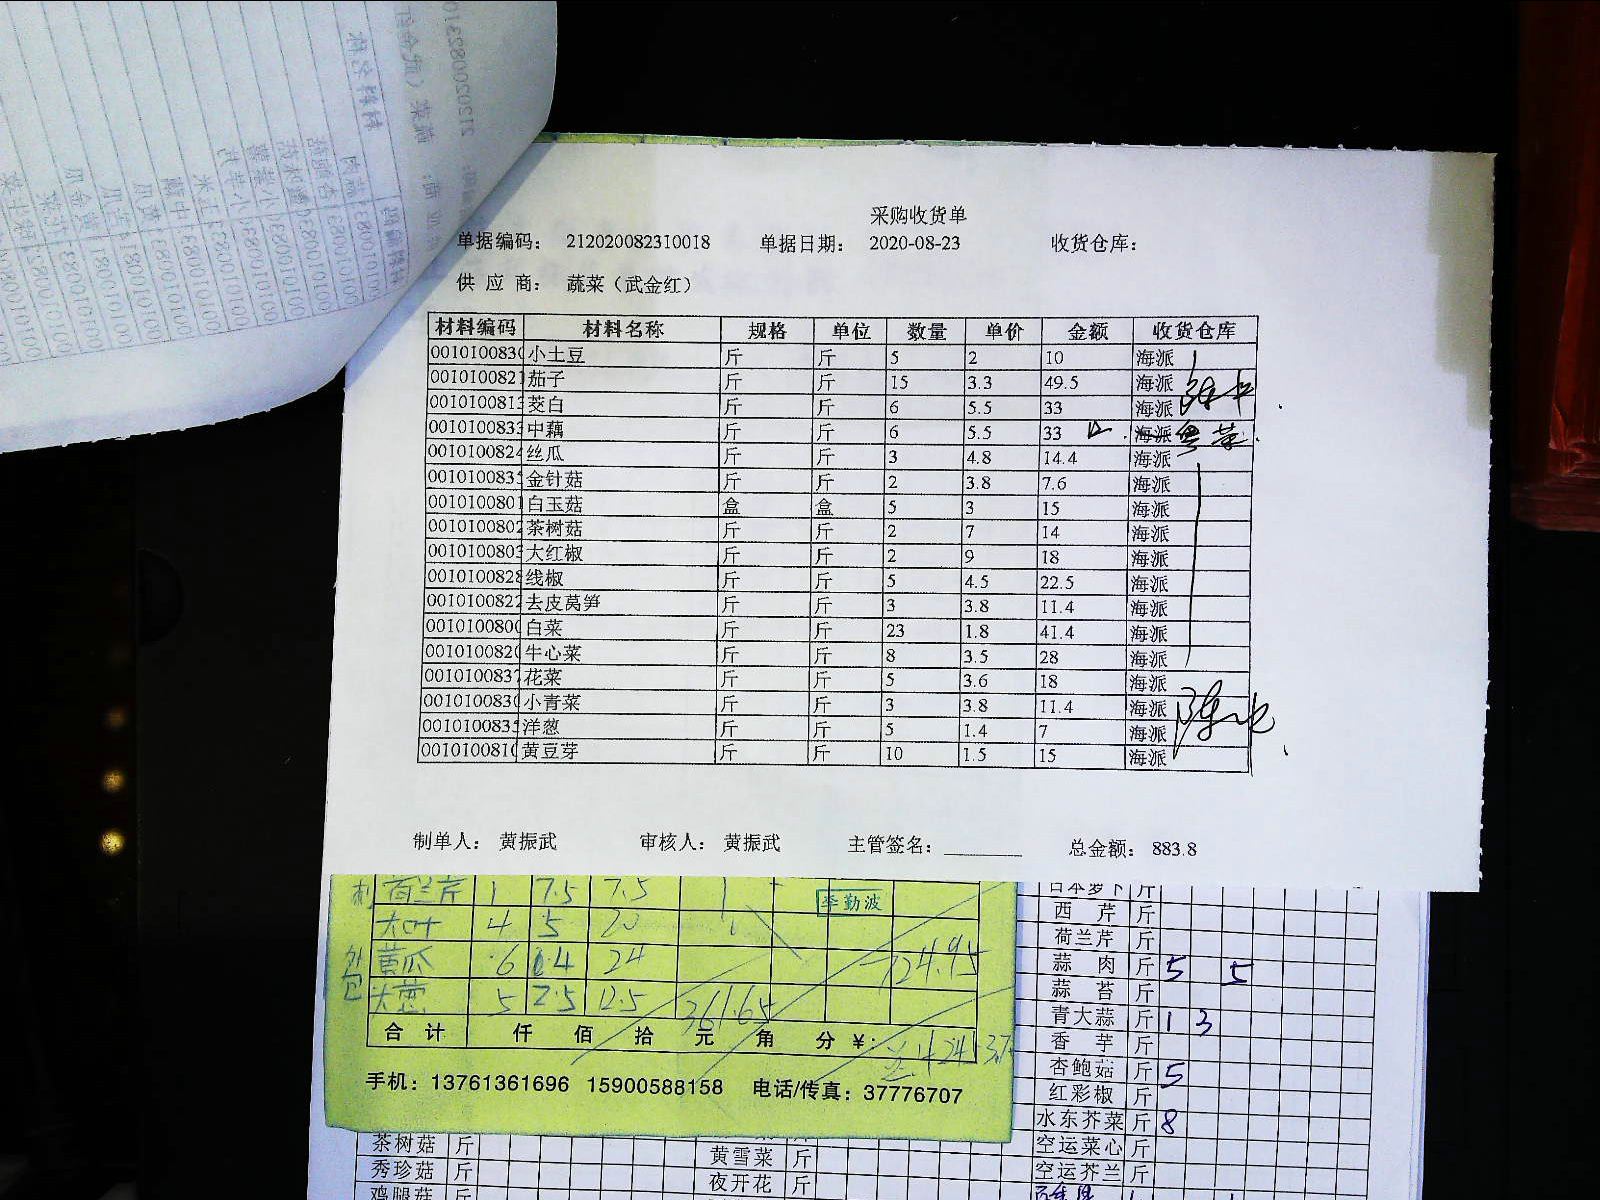 采购收货单
单据编码: 212020082310018 单据日期: 2020-08-23 收货仓库:
供 应 商: 蔬菜（武金红）
材料编码 材料名称 规格 单位 数量 单价 金额 收货仓库
0010100830 小土豆 斤 斤 5 2 10 海派
0010100821 茄子 斤 斤 15 3.3 49.5 海派
0010100813 茭白 斤 斤 6 5.5 33 海派
0010100833 中藕 斤 斤 6 5.5 33 海派 粤菜
0010100824 丝瓜 斤 斤 3 4.8 14.4 海派
001010083 金针菇 斤 斤 2 3.8 7.6 海派
0010100801 白玉菇 盒 盒 5 3 15 海派
0010100802 茶树菇 斤 斤 2 7 14 海派
0010100803 大红椒 斤 斤 2 9 18 海派
0010100828 线椒 斤 斤 5 4.5 22.5 海派
0010100822 去皮莴笋 斤 斤 3 3.8 11.4 海派
0010100800 白菜 斤 斤 23 1.8 41.4 海派
0010100820 牛心菜 斤 斤 8 3.5 28 海派
0010100837 花菜 斤 斤 5 3.6 18 海派
0010100830 小青菜 斤 斤 3 3.8 11.4 海派
001010083 洋葱 斤 斤 5 1.4 7 海派
0010100810 黄豆芽 斤 斤 10 1.5 15 海派
制单人: 黄振武 审核人: 黄振武 主管签名: 总金额: 883.8
荷兰芹 1 7.5 7.5
李勤波
大叶 4 5 20
黄瓜 6 4 24 124.95
大葱 5 2.5 12.5 361.65
合 计 仟 佰 拾 元 角 分 ¥:
手机: 13761361696 15900588158 电话/传真: 37776707
日本萝卜 斤
西 芹 斤
荷兰芹 斤
蒜 肉 斤 5 5
蒜 苔 斤
青大蒜 斤 1 3
香 芋 斤
杏鲍菇 斤 5
红彩椒 斤
水东芥菜 斤 8
空运菜心 斤
空运芥兰 斤
茶树菇 斤 黄雪菜 斤
秀珍菇 斤 夜开花 斤
鸡腿菇 斤